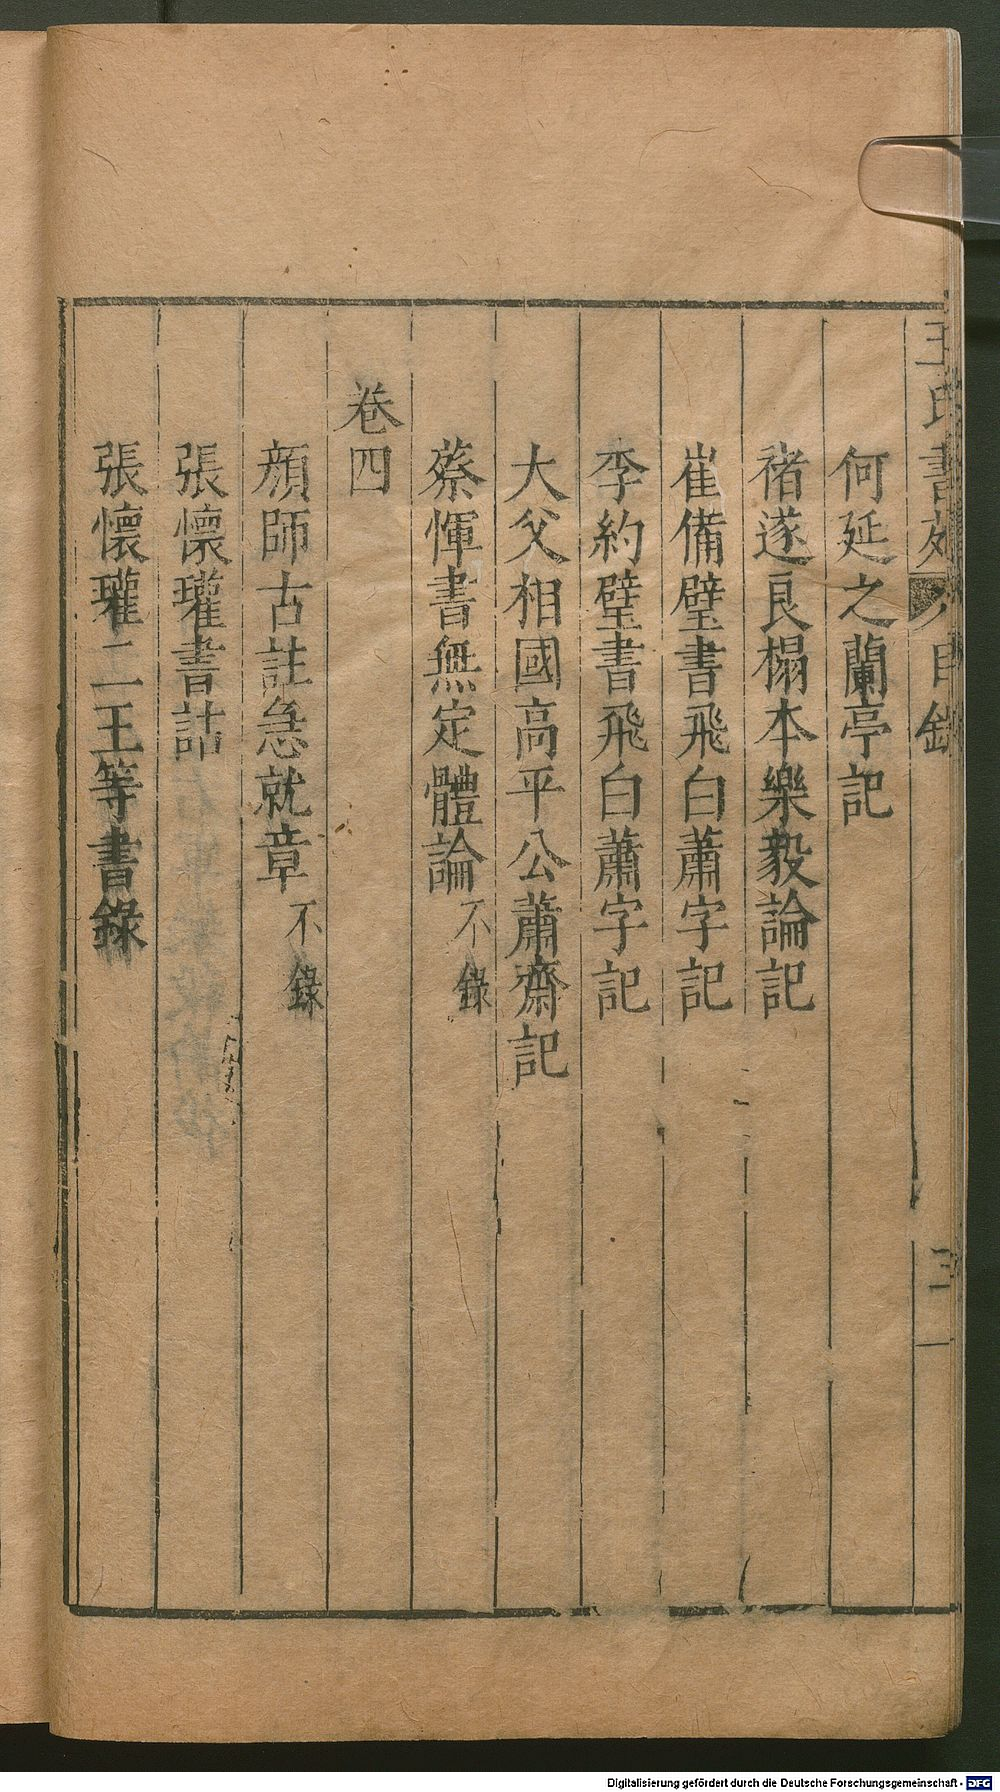 王氏書苑 目錄 三
何延之蘭亭記
褚遂良榻本樂毅論記
崔備壁書飛白蕭字記
李約壁書飛白蕭字記
大父相國高平公蕭齋記
蔡惲書無定體論不錄
卷四
顔師古註急就章不錄
張懷瓘書詁
張懷瓘二王等書錄
Digitalisierung gefördert durch die Deutsche Forschungsgemeinschaft - DFG